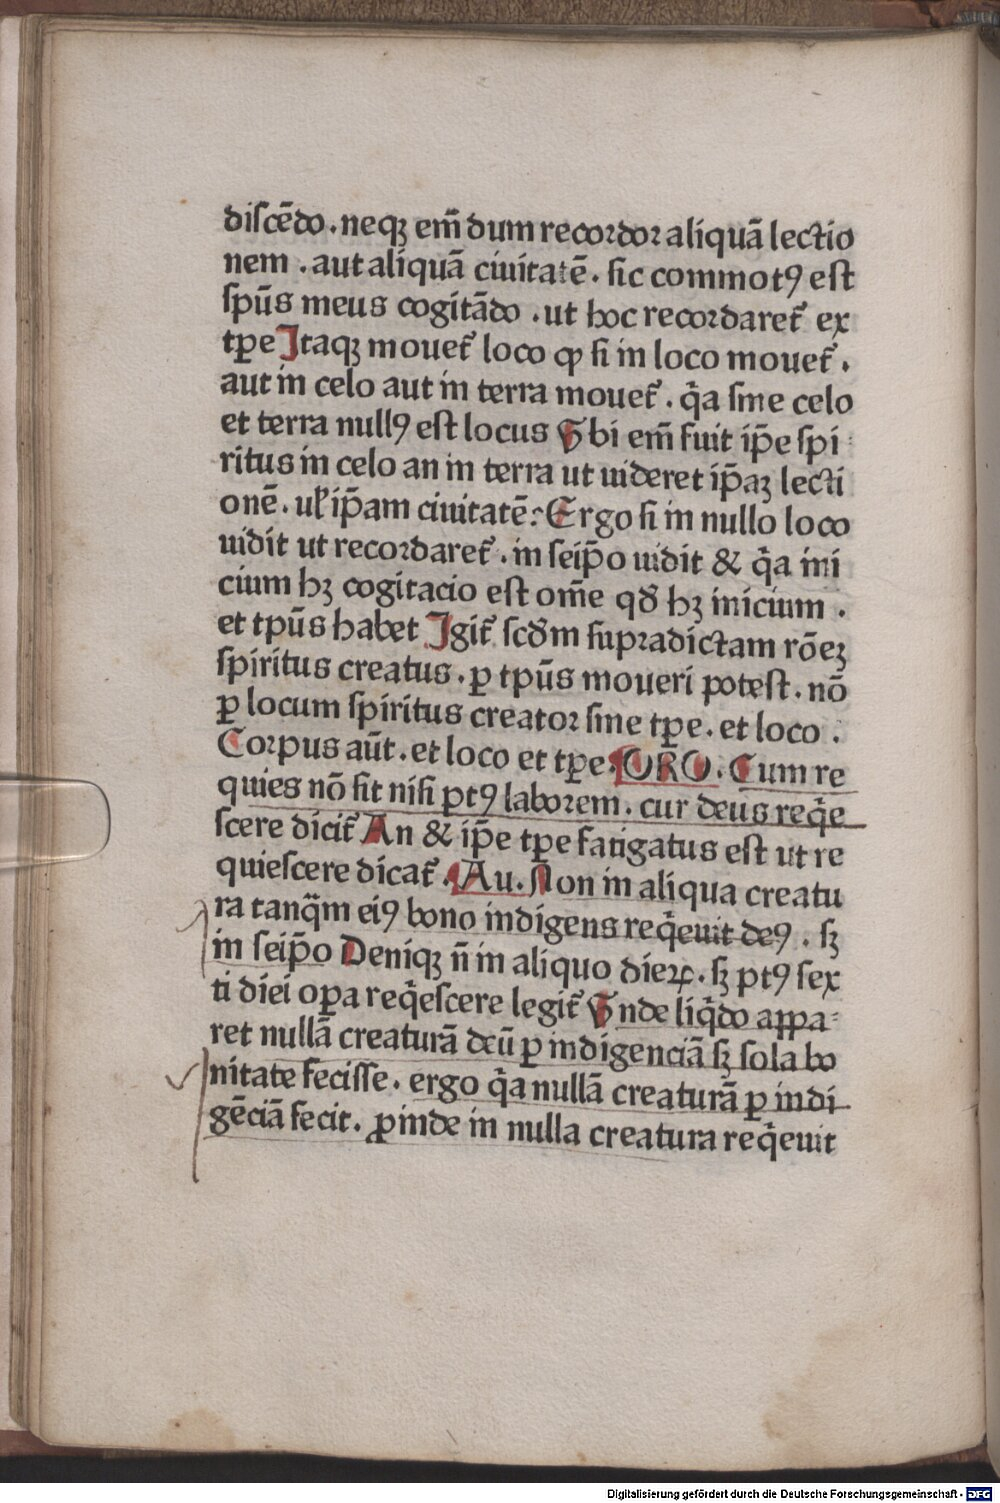 discẽdo . neqꝫ em̃ dum recordor aliquã lectio
nem . aut aliquã ciuitatẽ . sic commotꝰ est
spũs meus cogitãdo . ut hoc recordaret᷑ ex
tꝑe Itaqꝫ mouet᷑ loco ꝙ si in loco mouet᷑ .
aut in celo aut in terra mouet᷑ . q̃a sine celo
et terra nullꝰ est locus Vbi em̃ fuit ip̃e spi
ritus in celo an in terra ut uideret ip̃aꝫ lecti
onẽ . uł ip̃am ciuitatẽ : Ergo si in nullo loco
uidit ut recordaret᷑ . in seip̃o uidit & q̃a ini
cium hꝫ cogitacio est om̃e qđ hꝫ inicium .
et tpũs habet Igit᷑ scđm supradictam rõeꝫ
spiritus creatus . ꝑ tpũs moueri potest . nõ
ꝑ locum spiritus creator sine tꝑe . et loco .
Corpus aũt . et loco et tꝑe . ORO . Cum re
quies nõ sit nisi ptꝰ laborem . cur deus req̃e
scere dicit᷑ An & ip̃e tꝑe fatigatus est ut re
quiescere dicat᷑ . Au . Non in aliqua creatu
ra tanq̃m eiꝰ bono indigens req̃euit deꝰ . sꝫ
in seip̃o Deniqꝫ ñ in aliquo dieꝝ . sꝫ ptꝰ sex
ti diei oꝑa req̃escere legit᷑ Vnde liq̃do appa
ret nullã creaturã deũ ꝑ indigenciã sꝫ sola bo
nitate fecisse . ergo q̃a nullã creaturã ꝑ indi
gẽciã fecit . ꝓinde in nulla creatura req̃euit
Digitalisierung gefördert durch die Deutsche Forschungsgemeinschaft - DFG